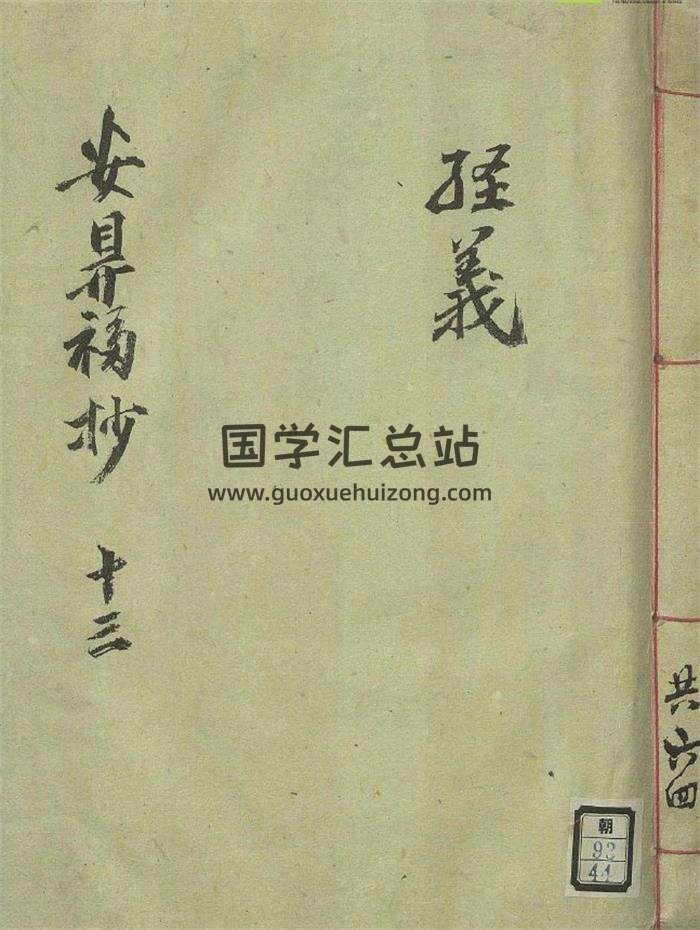 経義
安鼎福抄 十三
国学汇总站
www.guoxuehuizong.com
共六四
朝